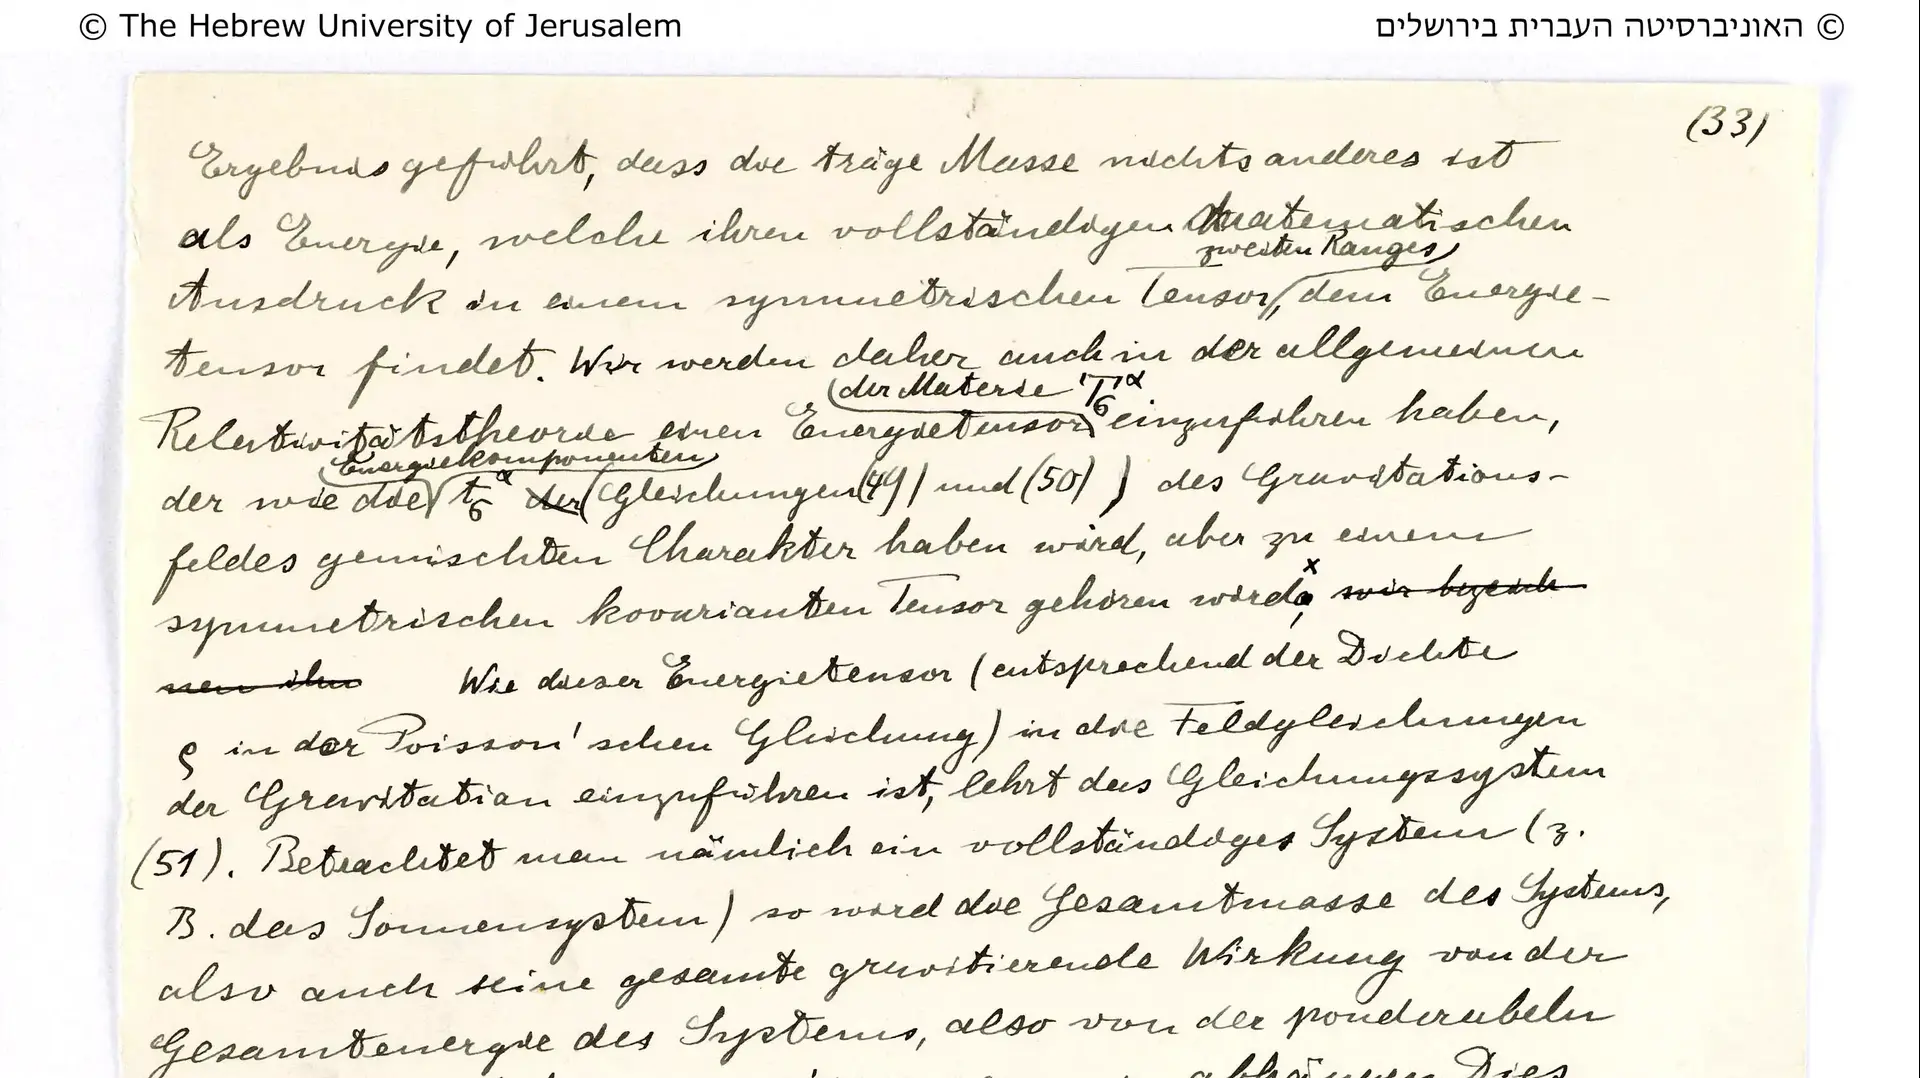 © The Hebrew University of Jerusalem
האוניברסיטה העברית בירושלים ©
(33)
Ergebnis geführt, dass die träge Masse nichts anderes ist
als Energie, welche ihren vollständigen matematischen
zweiten Ranges
Ausdruck in einem symmetrischen Tensor, dem Energie-
tensor findet. Wir werden daher auch in der allgemeinen
der Materie T_σ^α
Relativitätstheorie einen Energietensor einzuführen haben,
Energiekomponenten
der wie die t_σ^α der (Gleichungen (49) und (50)) des Gravitations-
feldes gemischten Charakter haben wird, aber zu einem
symmetrischen kovarianten Tensor gehören wird,x wir bezeich
nen ihn Wie dieser Energietensor (entsprechend der Dichte
ρ in der Poisson'schen Gleichung) in die Feldgleichungen
der Gravitation einzuführen ist, lehrt das Gleichungssystem
(51). Betrachtet man nämlich ein vollständiges System (z.
B. das Sonnensystem) so wird die Gesamtmasse des Systems,
also auch seine gesamte gravitierende Wirkung von der
Gesamtenergie des Systems, also von der ponderabeln
abhängen. Dies